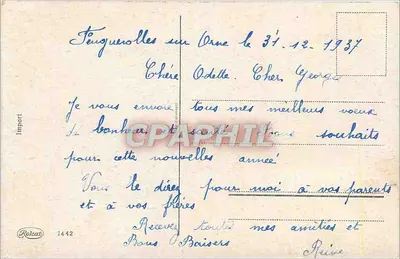 Feuguerolles sur Orne le 31-12-1937
Chère Odette. Cher Georges
Je vous envoie tous mes meilleurs voeux
de bonheur et santé souhaits
pour cette nouvelles année
Vous le direz pour moi à vos parents
et à vos frères
Recevez toutes mes amitiés et
Bons Baisers
Reine
Import
CPAPHIL
1442